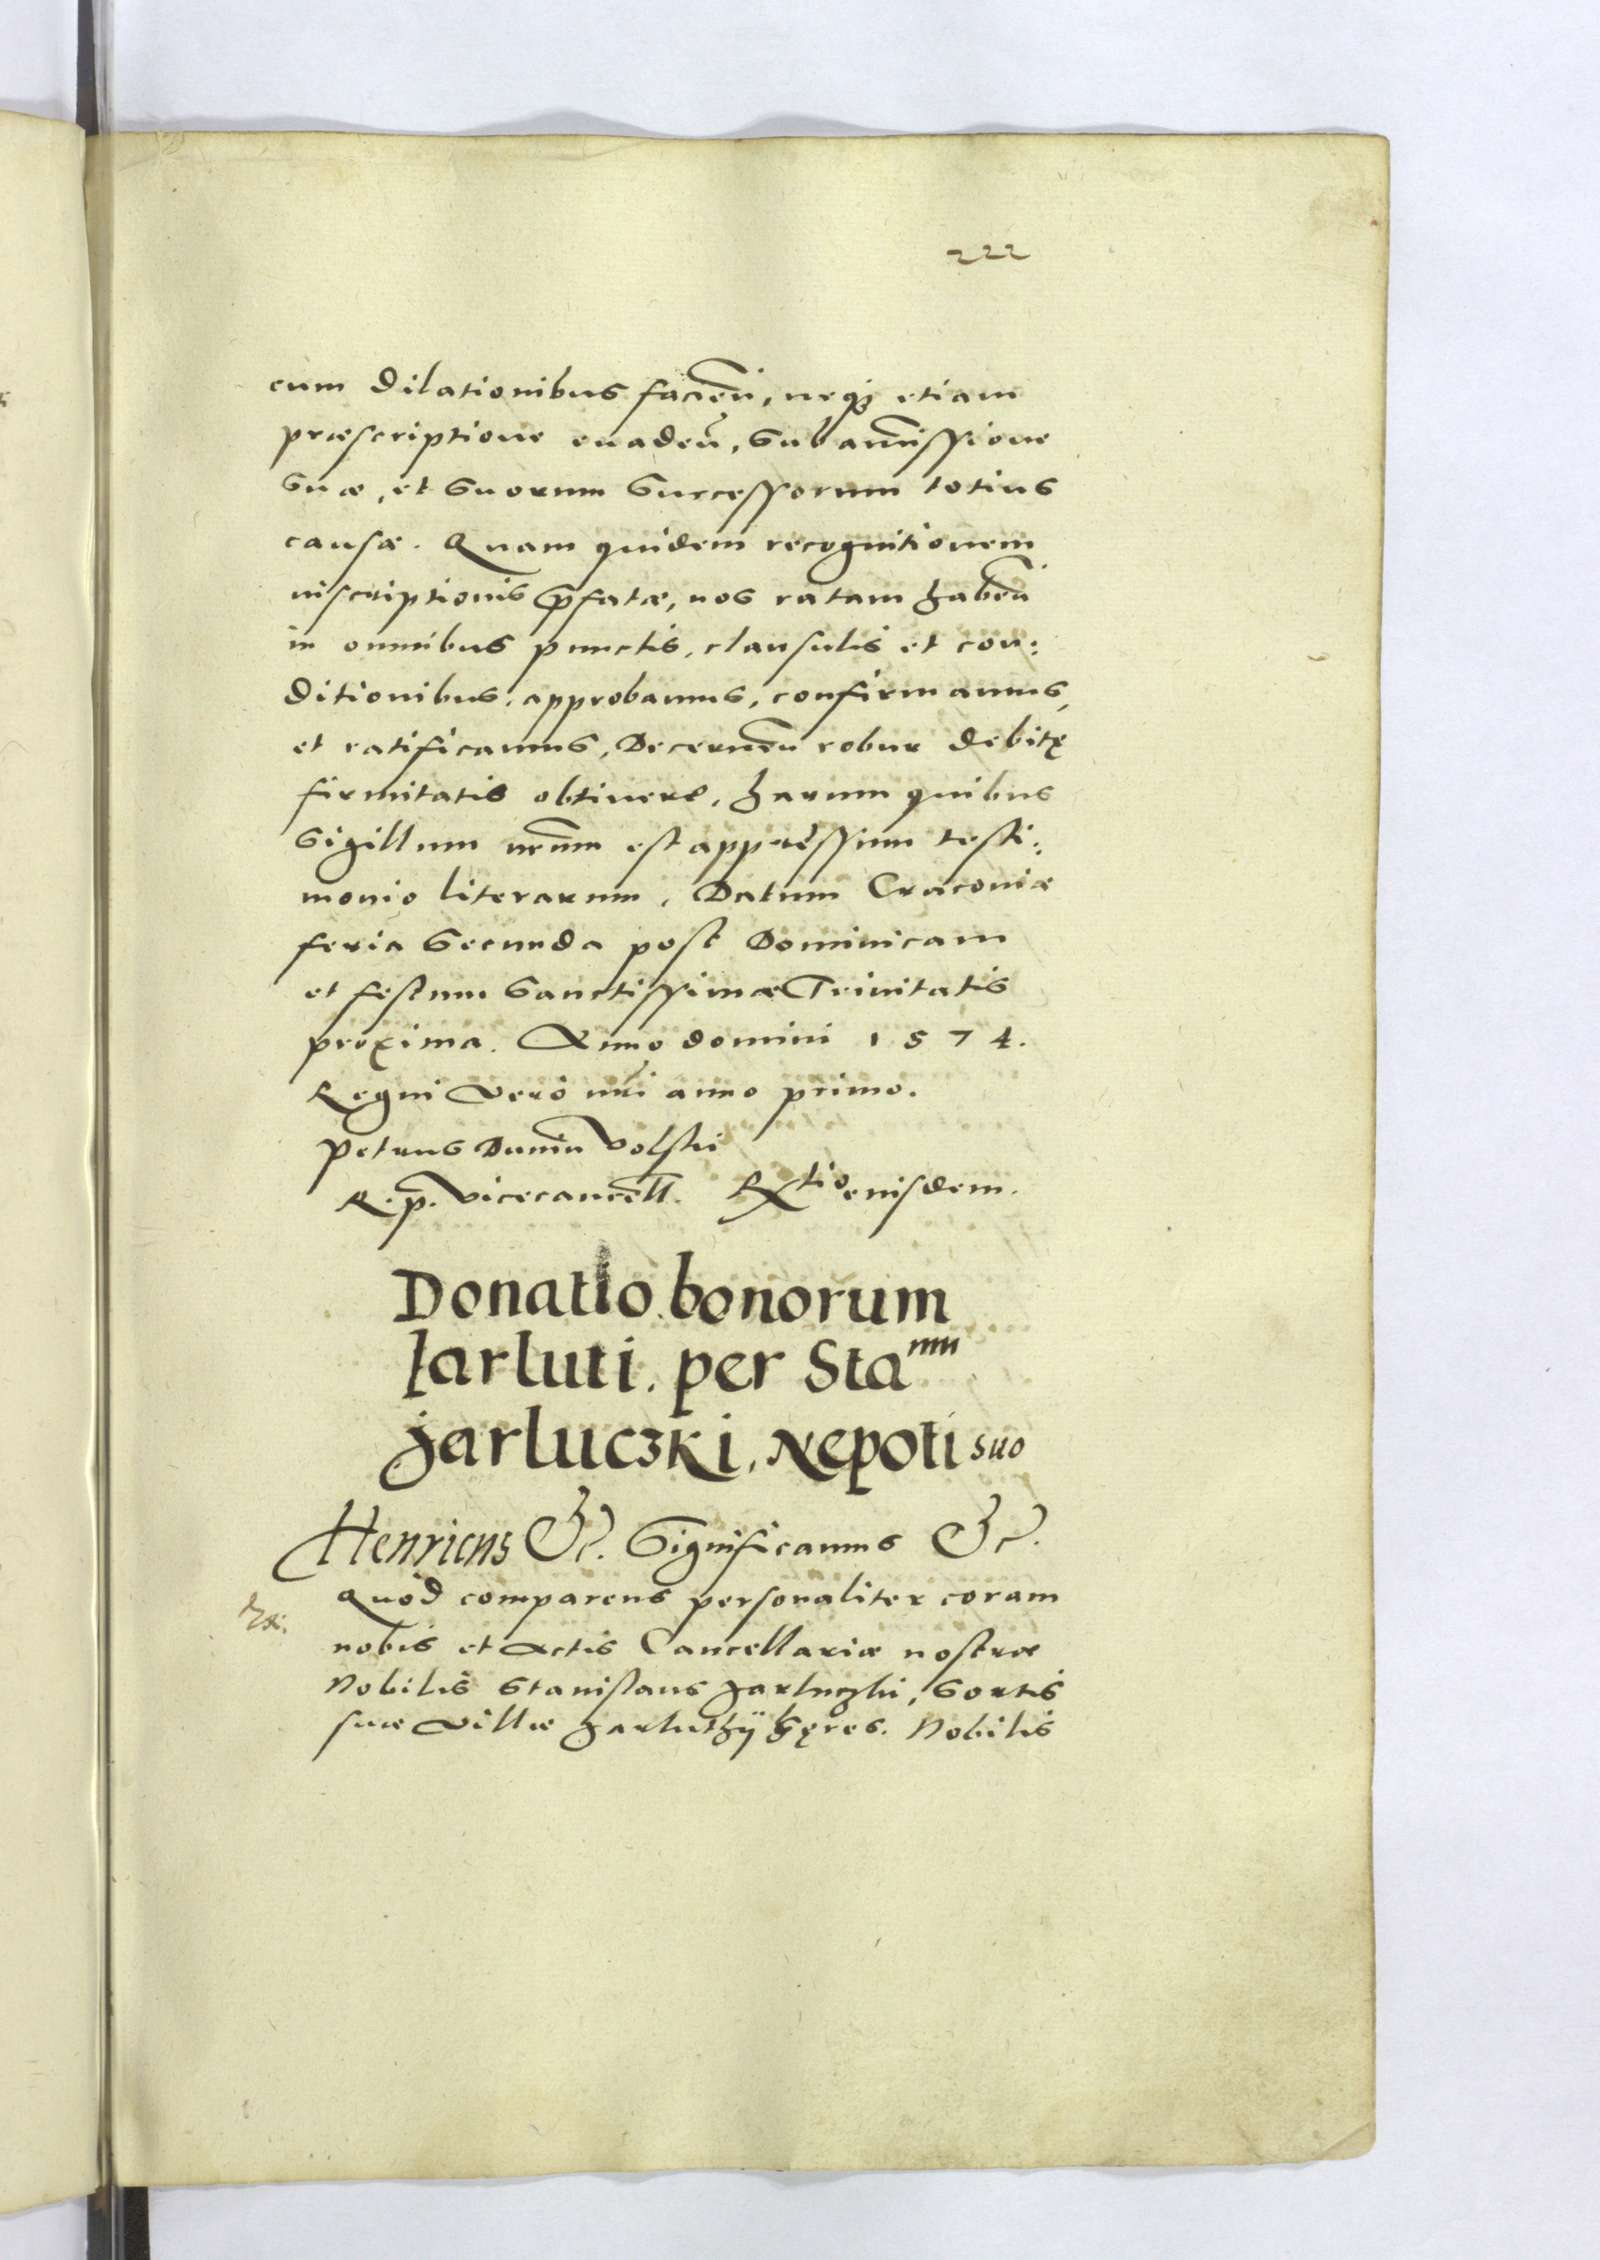 222
cum dilationibus facien̄, neqȝ etiam
præscriptione evaden̄, sub amissione
suæ, et suorum successorum totius
causæ. Quam quidem recognitionem
inscriptionis p̄fatæ, nos ratam haben̄
in omnibus punctis, clausulis et con:
ditionibus, approbamus, confirmamus,
et ratificamus, Decernen̄ robur debitę
firmitatis obtinere, harum quibus
Sigillum nr̄um est appressum testi:
monio literarum. Datum Cracoviæ
feria secunda post Dominicam
et festum Sanctissimæ Trinitatis
proxima. Anno domini 1574.
Regni vero nr̄i anno primo.
Petrus Dunin Volski
R. p. Vicecancell. Rtio eiusdem.
Donatio bonorum
Jarluti. per Sta num
Jarluczki, Nepoti suo
Henricus &c. Significamus &c.
Quod comparens personaliter coram
nobis et Actis Cancellariæ nostræ
Nobilis Stanislaus Jarluczki, sortis
suæ villæ Jarluthÿ hęres. Nobilis